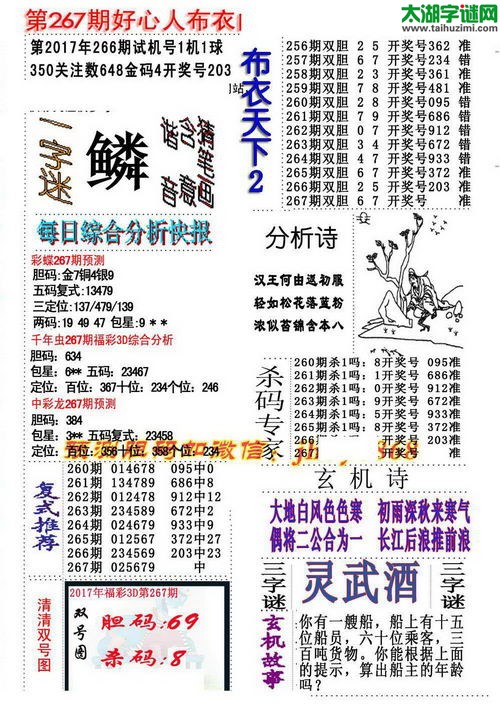 太湖字谜网
www.taihuzimi.com
第267期好心人布衣
第2017年266期试机号1机1球
350关注数648金码4开奖号203
站
布衣天下2
256期双胆 2 5 开奖号362 准
257期双胆 6 7 开奖号234 错
258期双胆 4 7 开奖号689 错
259期双胆 6 7 开奖号480 错
260期双胆 2 8 开奖号095 错
261期双胆 7 9 开奖号686 错
262期双胆 0 7 开奖号912 错
263期双胆 3 4 开奖号672 错
264期双胆 4 7 开奖号933 错
265期双胆 6 7 开奖号372 准
266期双胆 2 5 开奖号203 准
267期双胆 6 7 开奖号 准
一字迷
鳞
猜笔画
含意
猜音
每日综合分析快报
彩蝶267期预测
胆码:金7铜4银9
五码复式:13479
三定位:137/479/139
两码:19 49 47 包星:9 * *
千年虫267期福彩3D综合分析
胆码: 634
包星: 6** 五码: 23467
定位: 百位: 367十位: 234个位: 246
中彩龙267期预测
胆码: 384
包星: 3** 五码复式: 23458
定位: 百位: 356十位: 358个位: 234
分析诗
汉王何由返初履
轻如松花落蓝粉
浓似苔锦含本八
杀码专家
260期杀1吗: 8开奖号 095准
261期杀1吗: 1开奖号 686准
262期杀1吗: 0开奖号 912准
263期杀1吗: 9开奖号 672准
264期杀1吗: 6开奖号 933准
265期杀1吗: 9开奖号 372准
266期
203准
267
准
复式推荐
260期 014678 095中0
261期 134789 686中8
262期 012478 912中12
263期 234689 672中26
264期 024679 933中9
265期 012567 372中27
266期 234569 203中23
267期 025679 中
玄机诗
大地白风色色寒 初雨深秋来寒气
偶将二公合为一 长江后浪推前浪
三字谜
灵武酒
三字谜
清清双号图
2017年福彩3D第267期
双号图
胆码:69
杀码:8
玄机故事
你有一艘船，船上有十五
位船员，六十位乘客，三
百吨货物。你能根据上面
的提示，算出船主的年龄
吗？